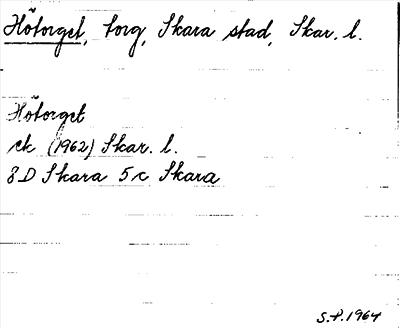 Hötorget, torg, Skara stad, Skar. l.
Hötorget
ek (1962) Skar. l.
8D Skara 5c Skara
S.P. 1964